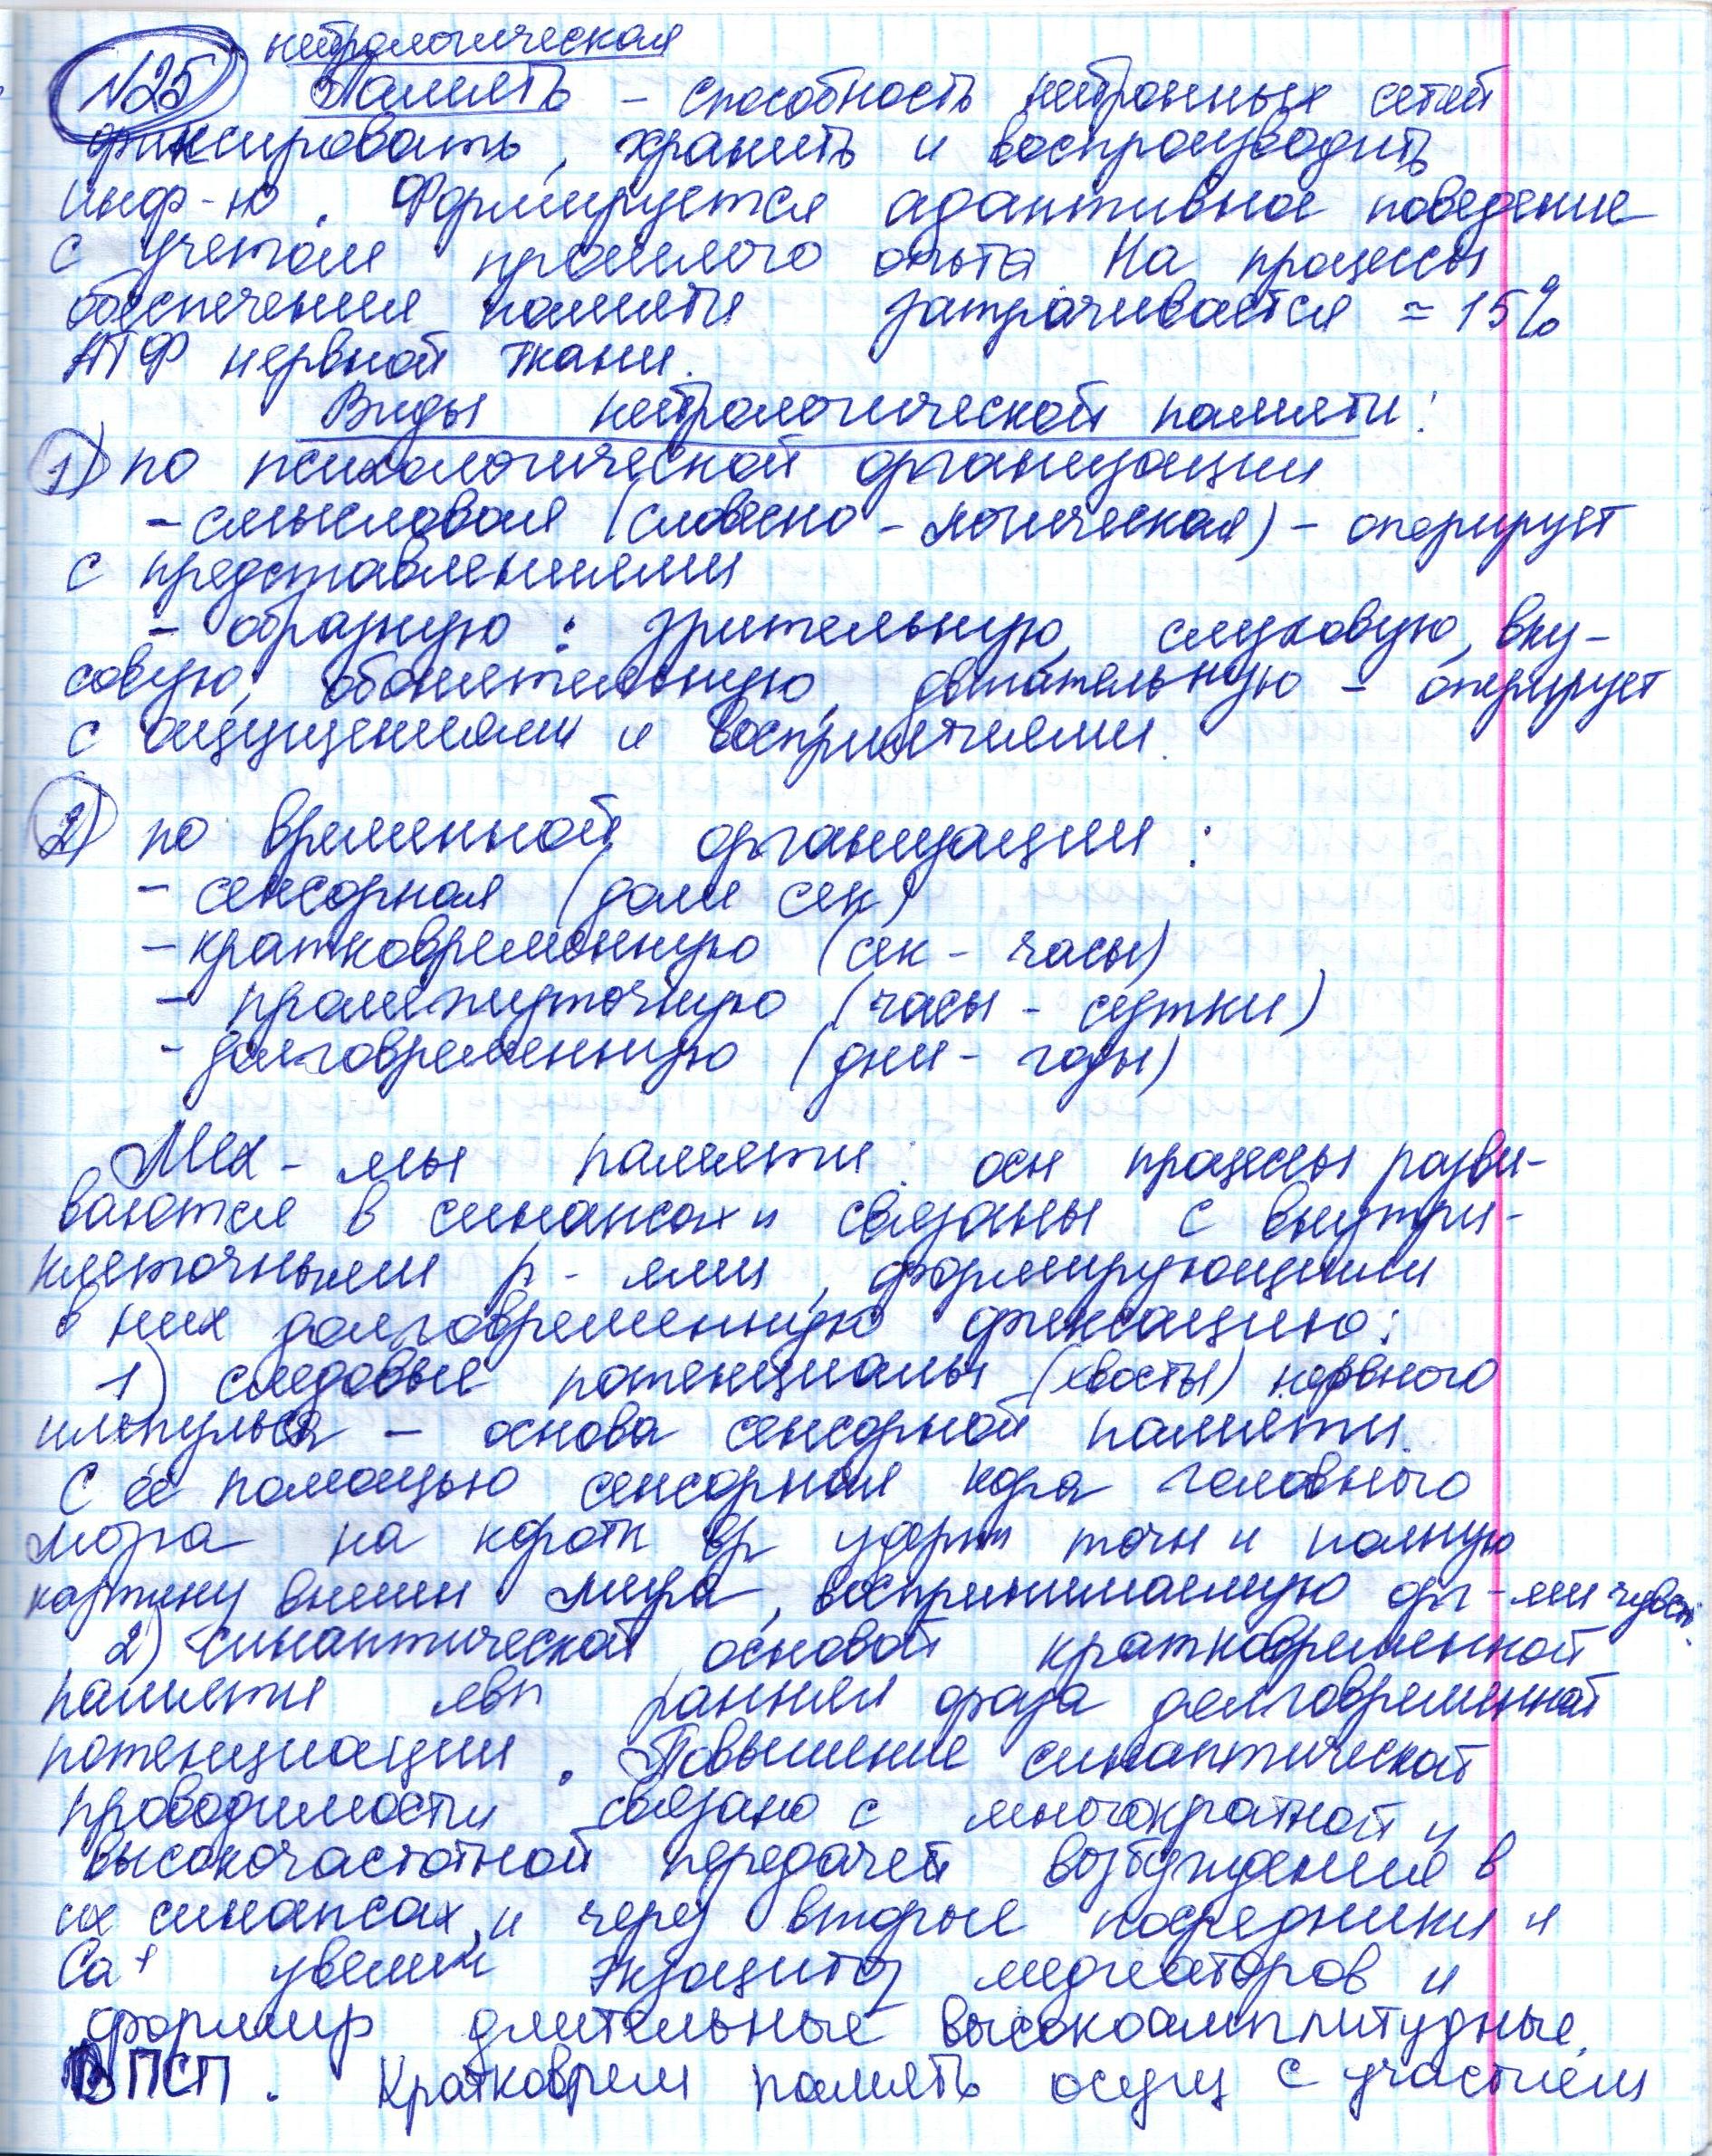 нейрологическая
№25 Память – способность нейронных сетей
фиксировать, хранить и воспроизводить
инф-ю. Формируется адаптивное поведение
с учетом прошлого опыта На процессы
обеспечения памяти затрачивается ≈ 15%
АТФ нервной ткани.
Виды нейрологической памяти:
1) по психологической организации
– смысловая (словесно – логическая) – оперирует
с представлениями
– образную: зрительную, слуховую, вку-
совую, обонятельную, двигательную – оперирует
с ощущениями и восприятиями.
2) по временной организации:
– сенсорная (доли сек)
– кратковременную (сек – часы)
– промежуточную (часы – сутки)
– долговременную (дни – годы)
Мех-мы памяти: осн процессы разви-
ваются в синапсах и связаны с внутри-
клеточными р-ями, формирующими
в них долговременную фиксацию:
1) следовые потенциалы (хвосты) нервного
импульса – основа сенсорной памяти.
С её помощью сенсорная кора головного
мозга на коротк вр удерж точн и полную
картину внешн. мира, воспринимаемую орг-ми чувств.
2) синаптической основой кратковременной
памяти явл ранняя фаза долговременной
потенциации. Повышение синаптической
проводимости связано с многократной и
высокочастотной передачей возбуждения в
их синапсах, и через вторые посредники и
Ca⁺ увелич экзоцитоз медиаторов и
формир длительные высокоамплитудные
ВПСП. Кратковрем память осущ с участием